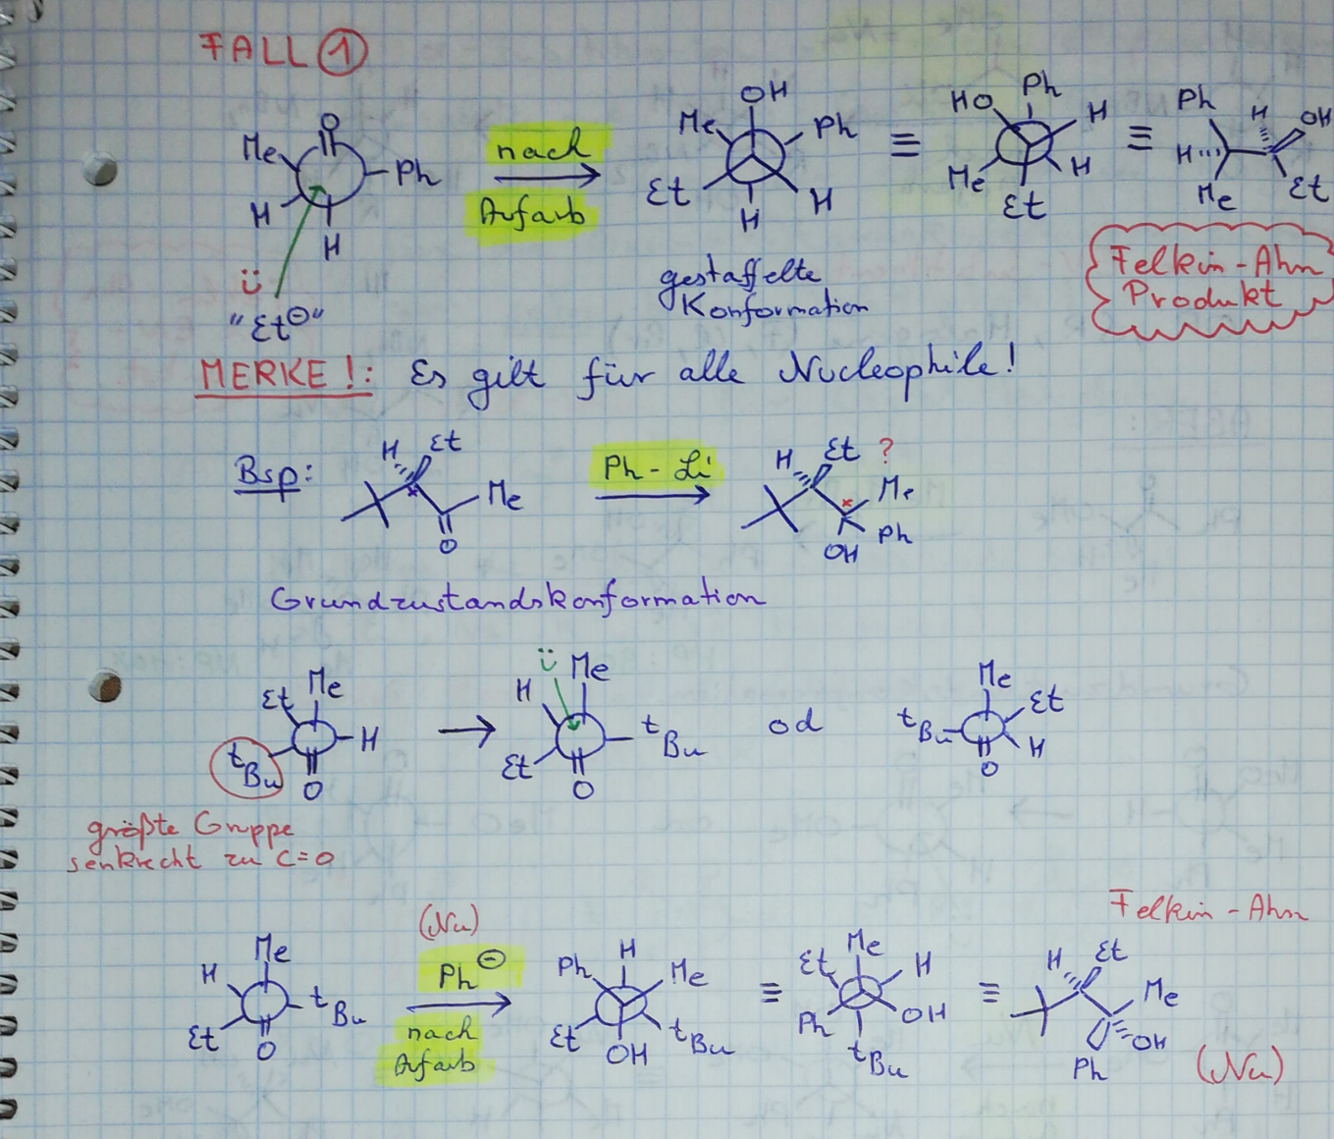 FALL ①
O
Me
Ph
H
H
"Et⊖"
nach
Aufarb
OH
Me
Ph
Et
H
H
gestaffelte
Konformation
≡
HO
Ph
H
Me
Et
H
≡
Ph
H
OH
H
Me
Et
Felkin-Ahn
Produkt
MERKE!: Es gilt für alle Nucleophile!
Bsp:
H
Et
Me
O
Ph-Li
H
Et
?
Me
Ph
OH
Grundzustandskonformation
Et
Me
H
tBu
O
größte Gruppe
senkrecht zu C=O
H
Me
tBu
Et
O
od
Me
Et
tBu
H
O
H
Me
tBu
Et
O
(Nu)
Ph⊖
nach
Aufarb
H
Ph
Me
Et
tBu
OH
≡
Me
Et
H
Ph
OH
tBu
≡
Felkin-Ahn
H
Et
Me
OH
Ph
(Nu)